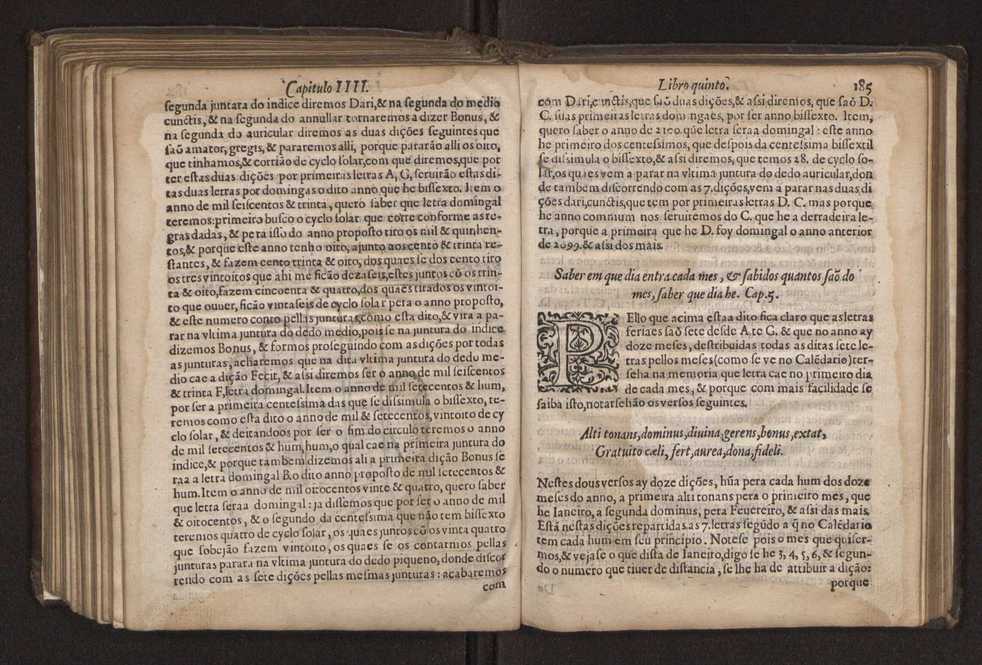 Capitulo IIII.
segunda juntara do indice diremos Dari,& na segunda do medio
cunctis, & na segunda do annullar tornaremos a dizer Bonus, &
na segunda do auricular diremos as duas dições seguintes que
saõ amator, gregis, & pararemos alli, porque pararão alli os oito,
que tinhamos,& corrião de cyclo solar, com que diremos,que por
ter estas duas dições por primeiras letras A, G, seruirão estas di-
tas duas letras por domingas o dito anno que he bissexto. Item o
anno de mil seiscentos & trinta, quero saber que letra domingal
teremos: primeiro busco o cyclo solar que corre conforme as re-
gras dadas, & pera isso do anno proposto tiro os mil & quinhen-
tos,& porque este anno tenho oito, ajunto aos cento & trinta re-
stantes, & fazem cento trinta & oito, dos quaes se dos cento tiro
os tres vintoitos que ahi me ficão dezaseis, estes juntos cõ os trin-
ta & oito, fazem cincoenta & quatro, dos quaes tirados os vintoi-
to que ouuer, ficão vintaseis de cyclo solar pera o anno proposto,
& este numero conto pellas junturas, como esta dito,& vira a pa-
rar na vltima juntura do dedo medio, pois se na juntura do indice
dizemos Bonus, & formos proseguindo com as dições por todas
as junturas, acharemos que na dita vltima juntura do dedo me-
dio cae a dição Fecit, & assi diremos ser o anno de mil seiscentos
& trinta F, letra domingal. Item o anno de mil setecentos & hum,
por ser a primeira centesima das que se dissimula o bissexto, te-
remos como esta dito o anno de mil & setecentos, vintoito de cy
clo solar, & deitandoos por ser o fim do circulo teremos o anno
de mil setecentos & hum, hum, o qual cae na primeira juntura do
indice,& porque tambem dizemos ali a primeira dição Bonus se
raa a letra domingal B. o dito anno proposto de mil setecentos &
hum. Item o anno de mil oitocentos vinte & quatro, quero saber
que letra seraa domingal: ja dissemos que por ser o anno de mil
& oitocentos, & o segundo da centesima que não tem bissexto
teremos quatro de cyclo solar, os quaes juntos cõ os vinta quatro
que sobejão fazem vintoito, os quaes se os contarmos pellas
junturas parara na vltima juntura do dedo piqueno, donde discor
rendo com as sete dições pellas mesmas junturas: acabaremos
com
Libro quinto. 185
com Dari, cunctis, que saõ duas dições,& assi diremos, que saõ D.
C. suas primeiras letras domingaes, por ser anno bissexto. Item,
quero saber o anno de 2100. que letra seraa domingal: este anno
he primeiro dos centesimos, que despois da centesima bissextil
se dissimula o bissexto,& assi diremos, que temos 28. de cyclo so-
lar, os quaes vem a parar na vltima juntura do dedo auricular, don
de tambem discorrendo com as 7. dições, vem a parar nas duas di
ções dari, cunctis, que tem por primeiras letras D. C. mas porque
he anno commum nos seruiremos do C. que he a derradeira le-
tra, porque a primeira que he D. foy domingal o anno anterior
de 2099. & assi dos mais.
Saber em que dia entra cada mes, & sabidos quantos saõ do
mes, saber que dia he. Cap.5.
PEllo que acima estaa dito fica claro que as letras
feriaes saõ sete desde A. te G. & que no anno ay
doze meses, destribuidas todas as ditas sete le-
tras pellos meses (como se ve no Calẽdario) ter-
seha na memoria que letra cae no primeiro dia
de cada mes, & porque com mais facilidade se
saiba isto, notarsehão os versos seguintes.
Alti tonans, dominus, diuina, gerens, bonus, extat,
Gratuito cæli, fert, aurea, dona, fideli.
Nestes dous versos ay doze dições, hũa pera cada hum dos doze
meses do anno, a primeira alti tonans pera o primeiro mes, que
he Ianeiro, a segunda dominus, pera Feuereiro, & assi das mais.
Estã nestas dições repartidas as 7. letras segũdo a q̃ no Calẽdario
tem cada hum em seu principio. Notese pois o mes que quiser-
mos,& vejase o que dista de Ianeiro, digo se he 3, 4, 5, 6, & segun-
do o numero que tiuer de distancia, se lhe ha de attibuir a dição:
porque